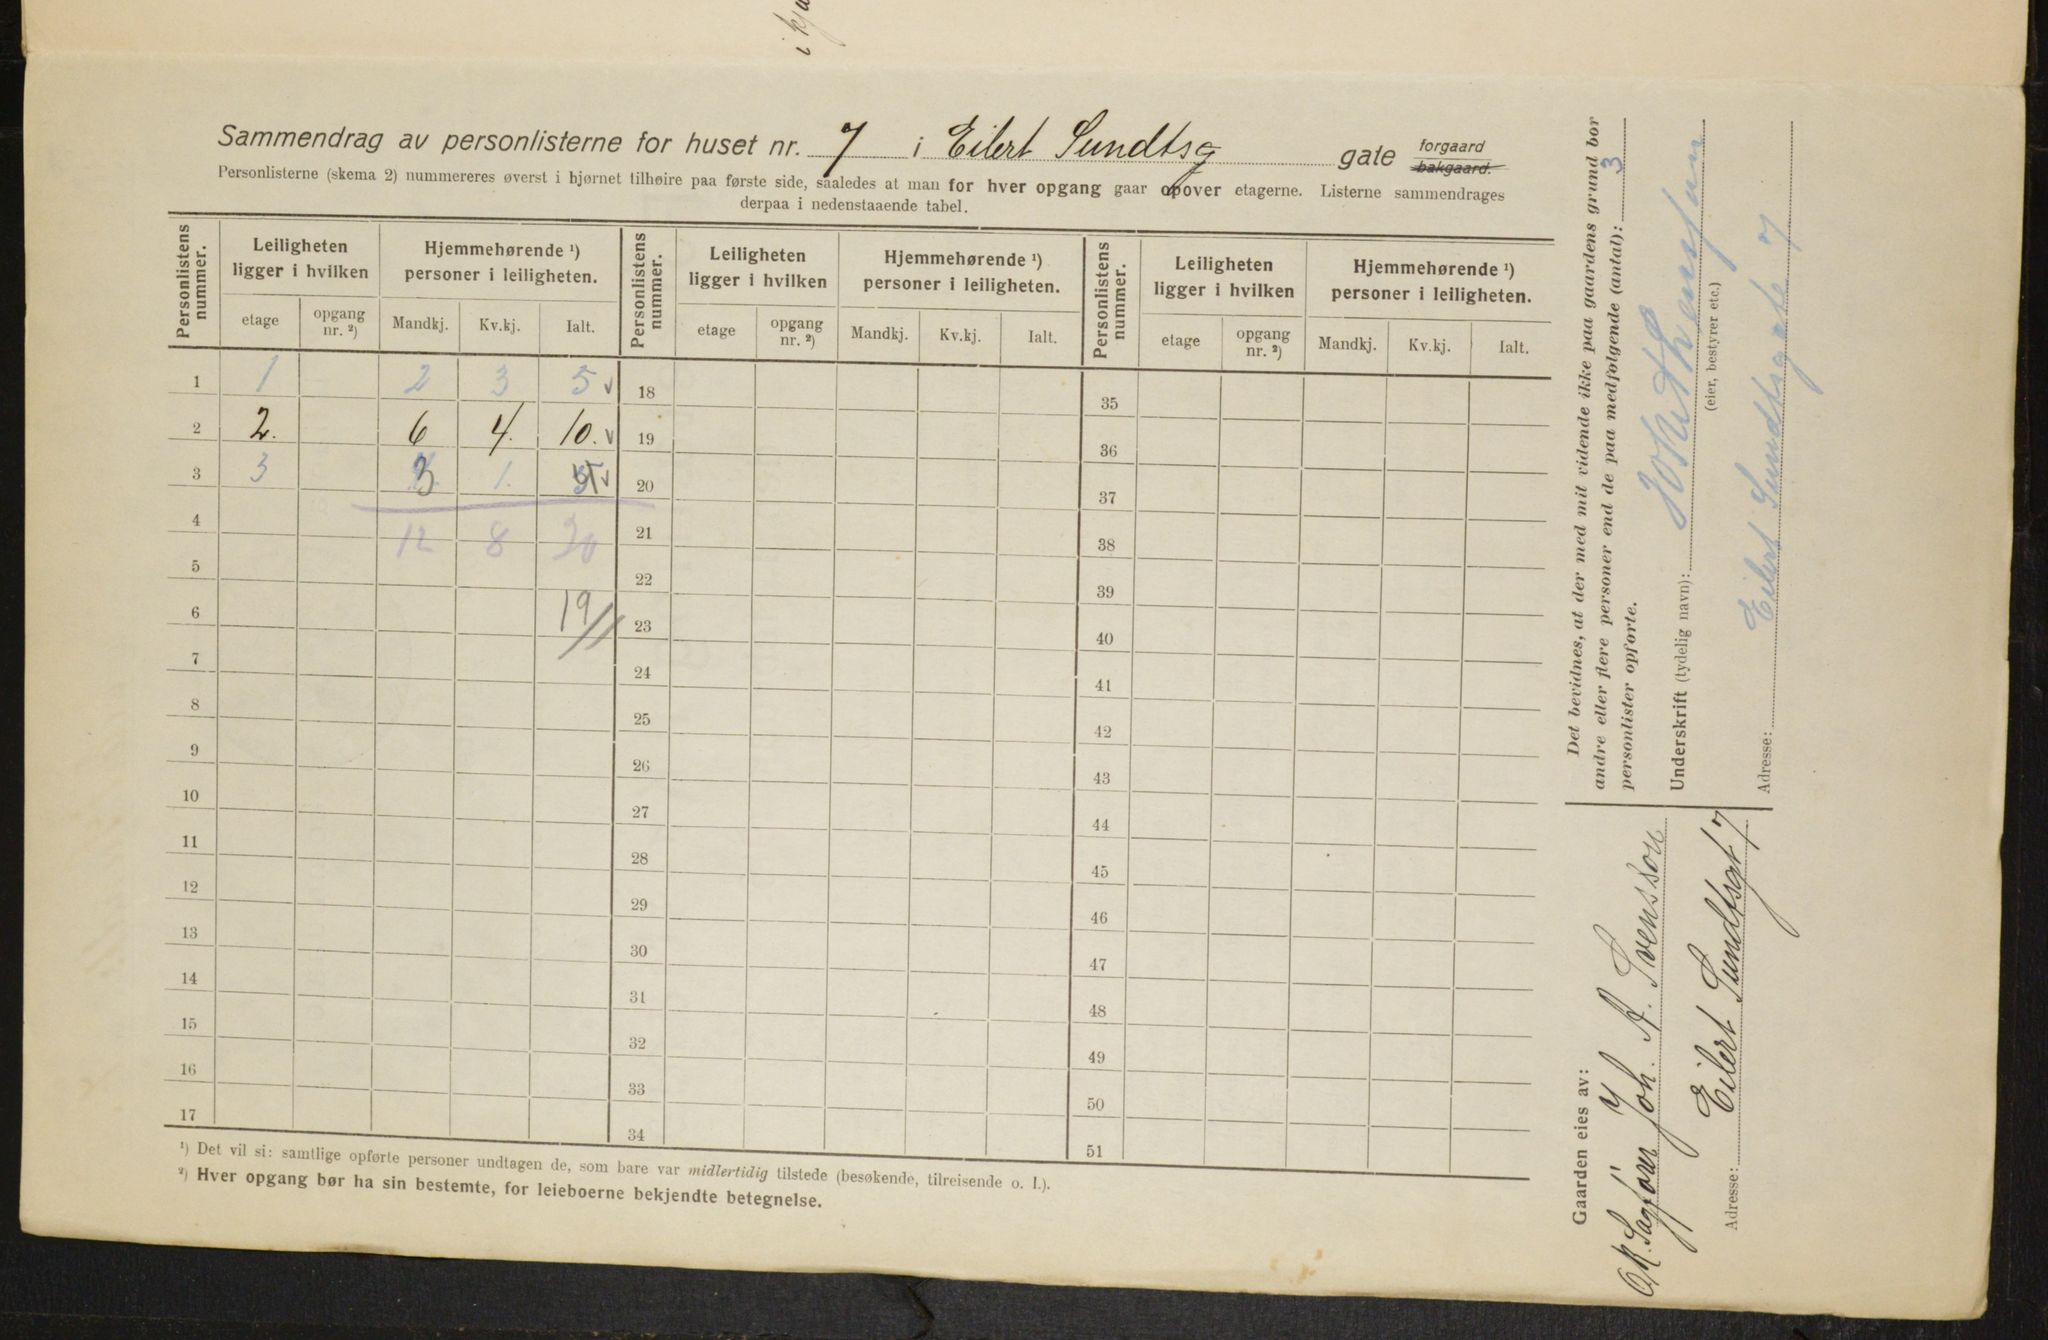 Sammendrag av personlisterne for huset nr. 7 i Eilert Sundtsg gate forgaard bakgaard.
Personlisterne (skema 2) nummereres øverst i hjørnet tilhøire paa første side, saaledes at man for hver opgang gaar opover etagerne. Listerne sammendrages
derpaa i nedenstaaende tabel.
Personlistens nummer. Leiligheten ligger i hvilken Hjemmehørende ¹) personer i leiligheten. Personlistens nummer. Leiligheten ligger i hvilken Hjemmehørende ¹) personer i leiligheten. Personlistens nummer. Leiligheten ligger i hvilken Hjemmehørende ¹) personer i leiligheten.
etage opgang nr. ²) Mandkj. Kv.kj. Ialt. etage opgang nr. ²) Mandkj. Kv.kj. Ialt. etage opgang nr. ²) Mandkj. Kv.kj. Ialt.
1 1 2 3 5 √ 18 35
2 2. 6 4. 10. √ 19 36
3 3 3 1. √ 20 37
4 12 8 20 21 38
5 22 39
6 19 23 40
7 24 41
8 25 42
9 26 43
10 27 44
11 28 45
12 29 46
13 30 47
14 31 48
15 32 49
16 33 50
17 34 51
¹) Det vil si: samtlige opførte personer undtagen de, som bare var midlertidig tilstede (besøkende, tilreisende o. l.).
²) Hver opgang bør ha sin bestemte, for leieboerne bekjendte betegnelse.
Det bevidnes, at der med mit vidende ikke paa gaardens grund bor
andre eller flere personer end de paa medfølgende (antal): 3
personlister opførte.
Underskrift (tydelig navn):
(eier, bestyrer etc.)
Adresse: Eilert Sundtsgate 7
Gaarden eies av:
Sagfører Joh. A. Svensson
Adresse: Eilert Sundtsgt 7